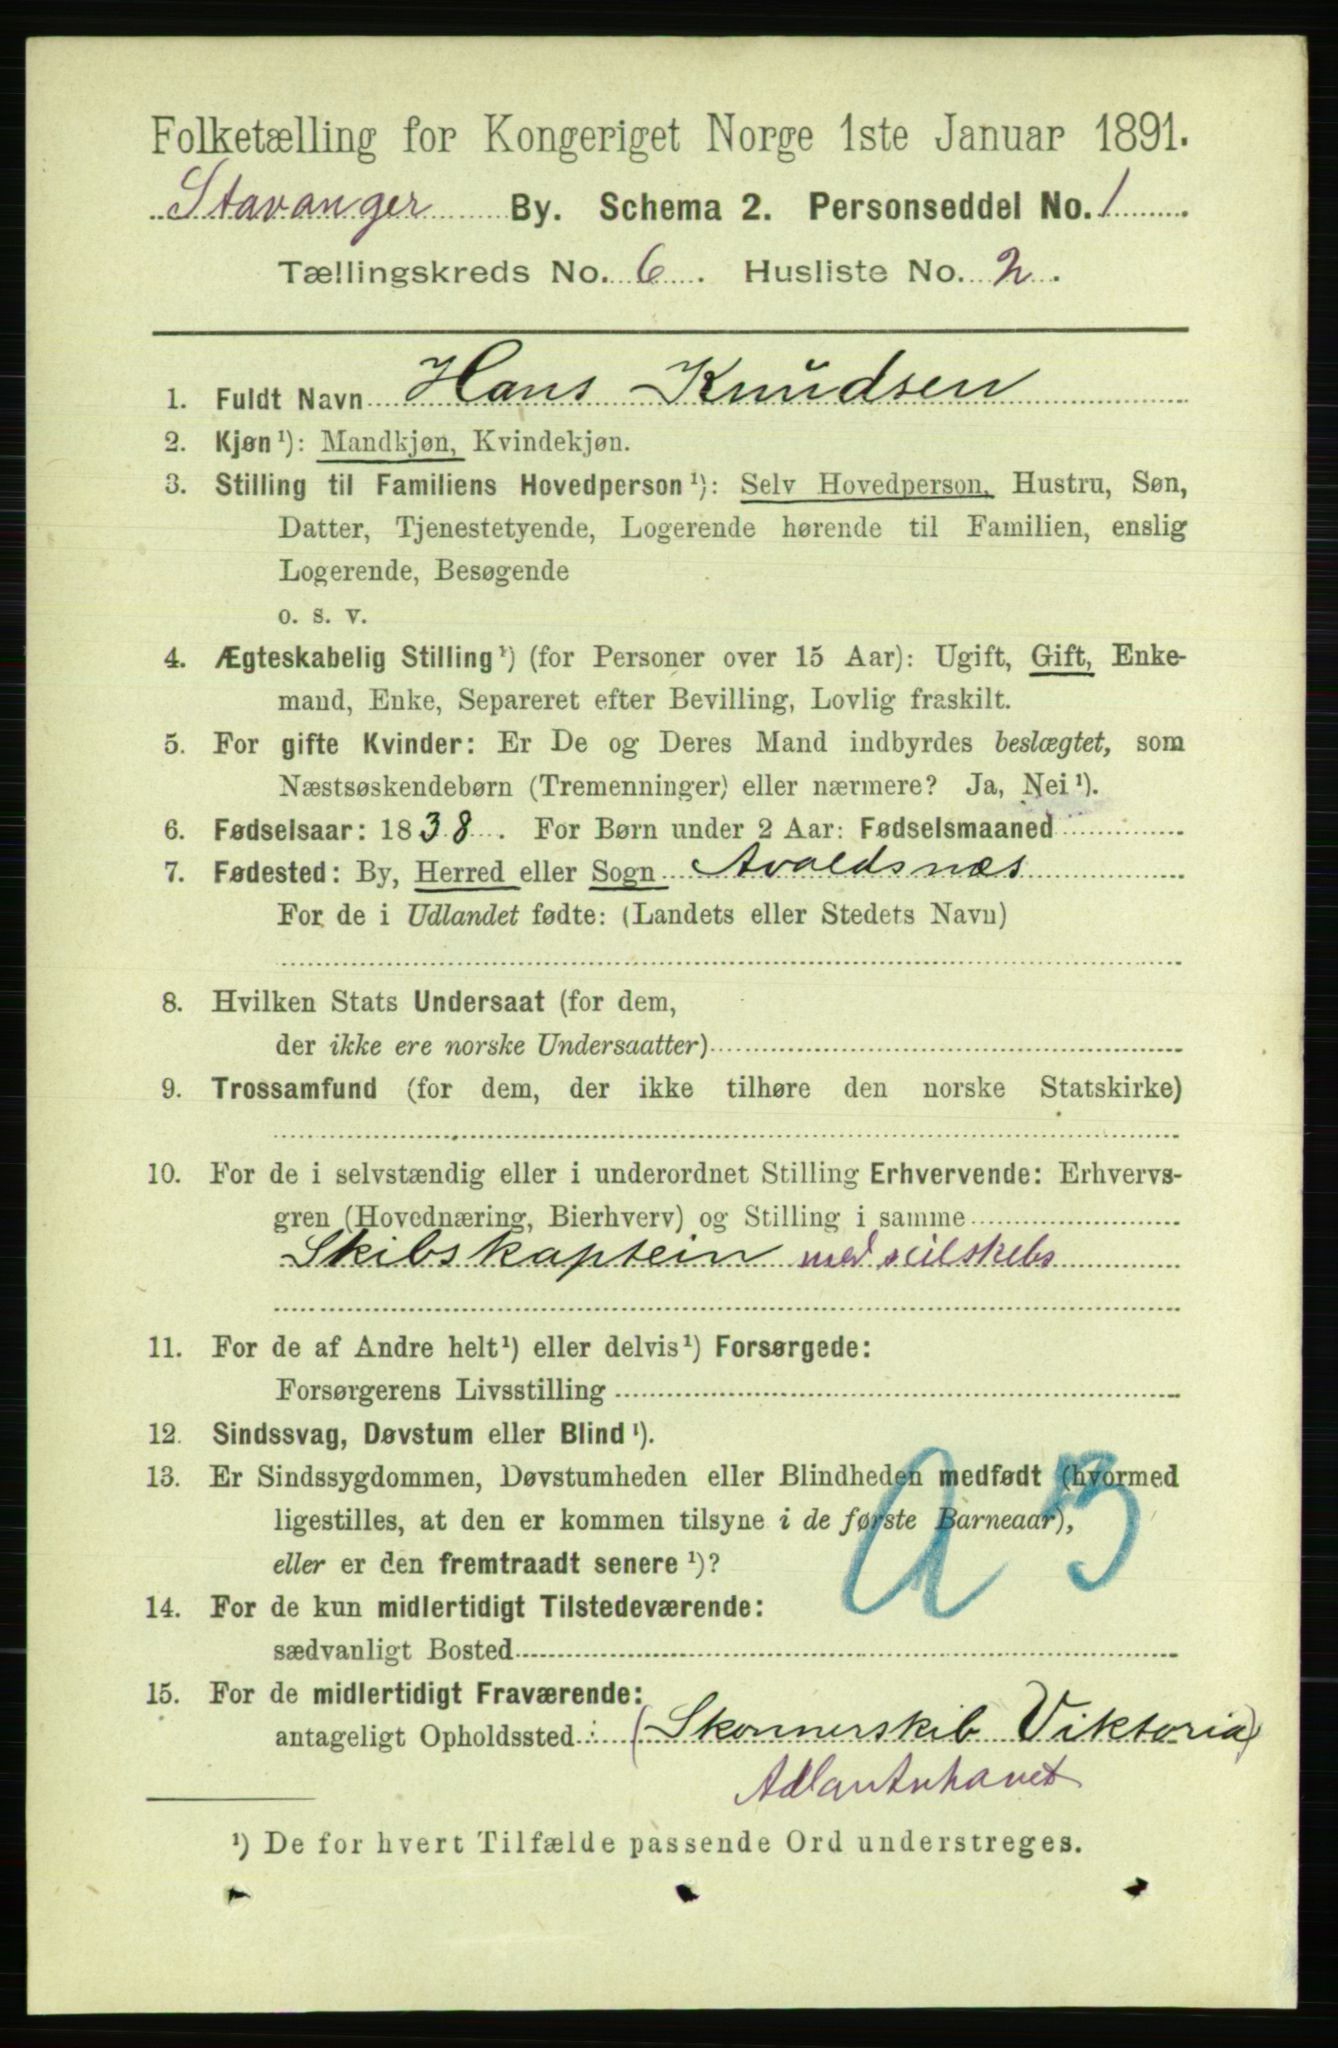 Folketælling for Kongeriget Norge 1ste Januar 1891.
Stavanger By. Schema 2. Personseddel No. 1
Tællingskreds No. 6. Husliste No. 2.
1. Fuldt Navn Hans Knudsen
2. Kjøn¹): Mandkjøn, Kvindekjøn.
3. Stilling til Familiens Hovedperson¹): Selv Hovedperson, Hustru, Søn,
Datter, Tjenestetyende, Logerende hørende til Familien, enslig
Logerende, Besøgende
o. s. v.
4. Ægteskabelig Stilling¹) (for Personer over 15 Aar): Ugift, Gift, Enke-
mand, Enke, Separeret efter Bevilling, Lovlig fraskilt.
5. For gifte Kvinder: Er De og Deres Mand indbyrdes beslægtet, som
Næstsøskendebørn (Tremenninger) eller nærmere? Ja, Nei¹).
6. Fødselsaar: 1838. For Børn under 2 Aar: Fødselsmaaned
7. Fødested: By, Herred eller Sogn Avaldsnæs
For de i Udlandet fødte: (Landets eller Stedets Navn)
8. Hvilken Stats Undersaat (for dem,
der ikke ere norske Undersaatter)
9. Trossamfund (for dem, der ikke tilhøre den norske Statskirke)
10. For de i selvstændig eller i underordnet Stilling Erhvervende: Erhvervs-
gren (Hovednæring, Bierhverv) og Stilling i samme
Skibskaptein med seilskebs
11. For de af Andre helt¹) eller delvis¹) Forsørgede:
Forsørgerens Livsstilling
12. Sindssvag, Døvstum eller Blind¹).
13. Er Sindssygdommen, Døvstumheden eller Blindheden medfødt (hvormed
ligestilles, at den er kommen tilsyne i de første Barneaar),
eller er den fremtraadt senere¹)?
14. For de kun midlertidigt Tilstedeværende:
sædvanligt Bosted
15. For de midlertidigt Fraværende:
antageligt Opholdssted : (Skonnerskib Viktoria)
Adlantnhavet
¹) De for hvert Tilfælde passende Ord understreges.